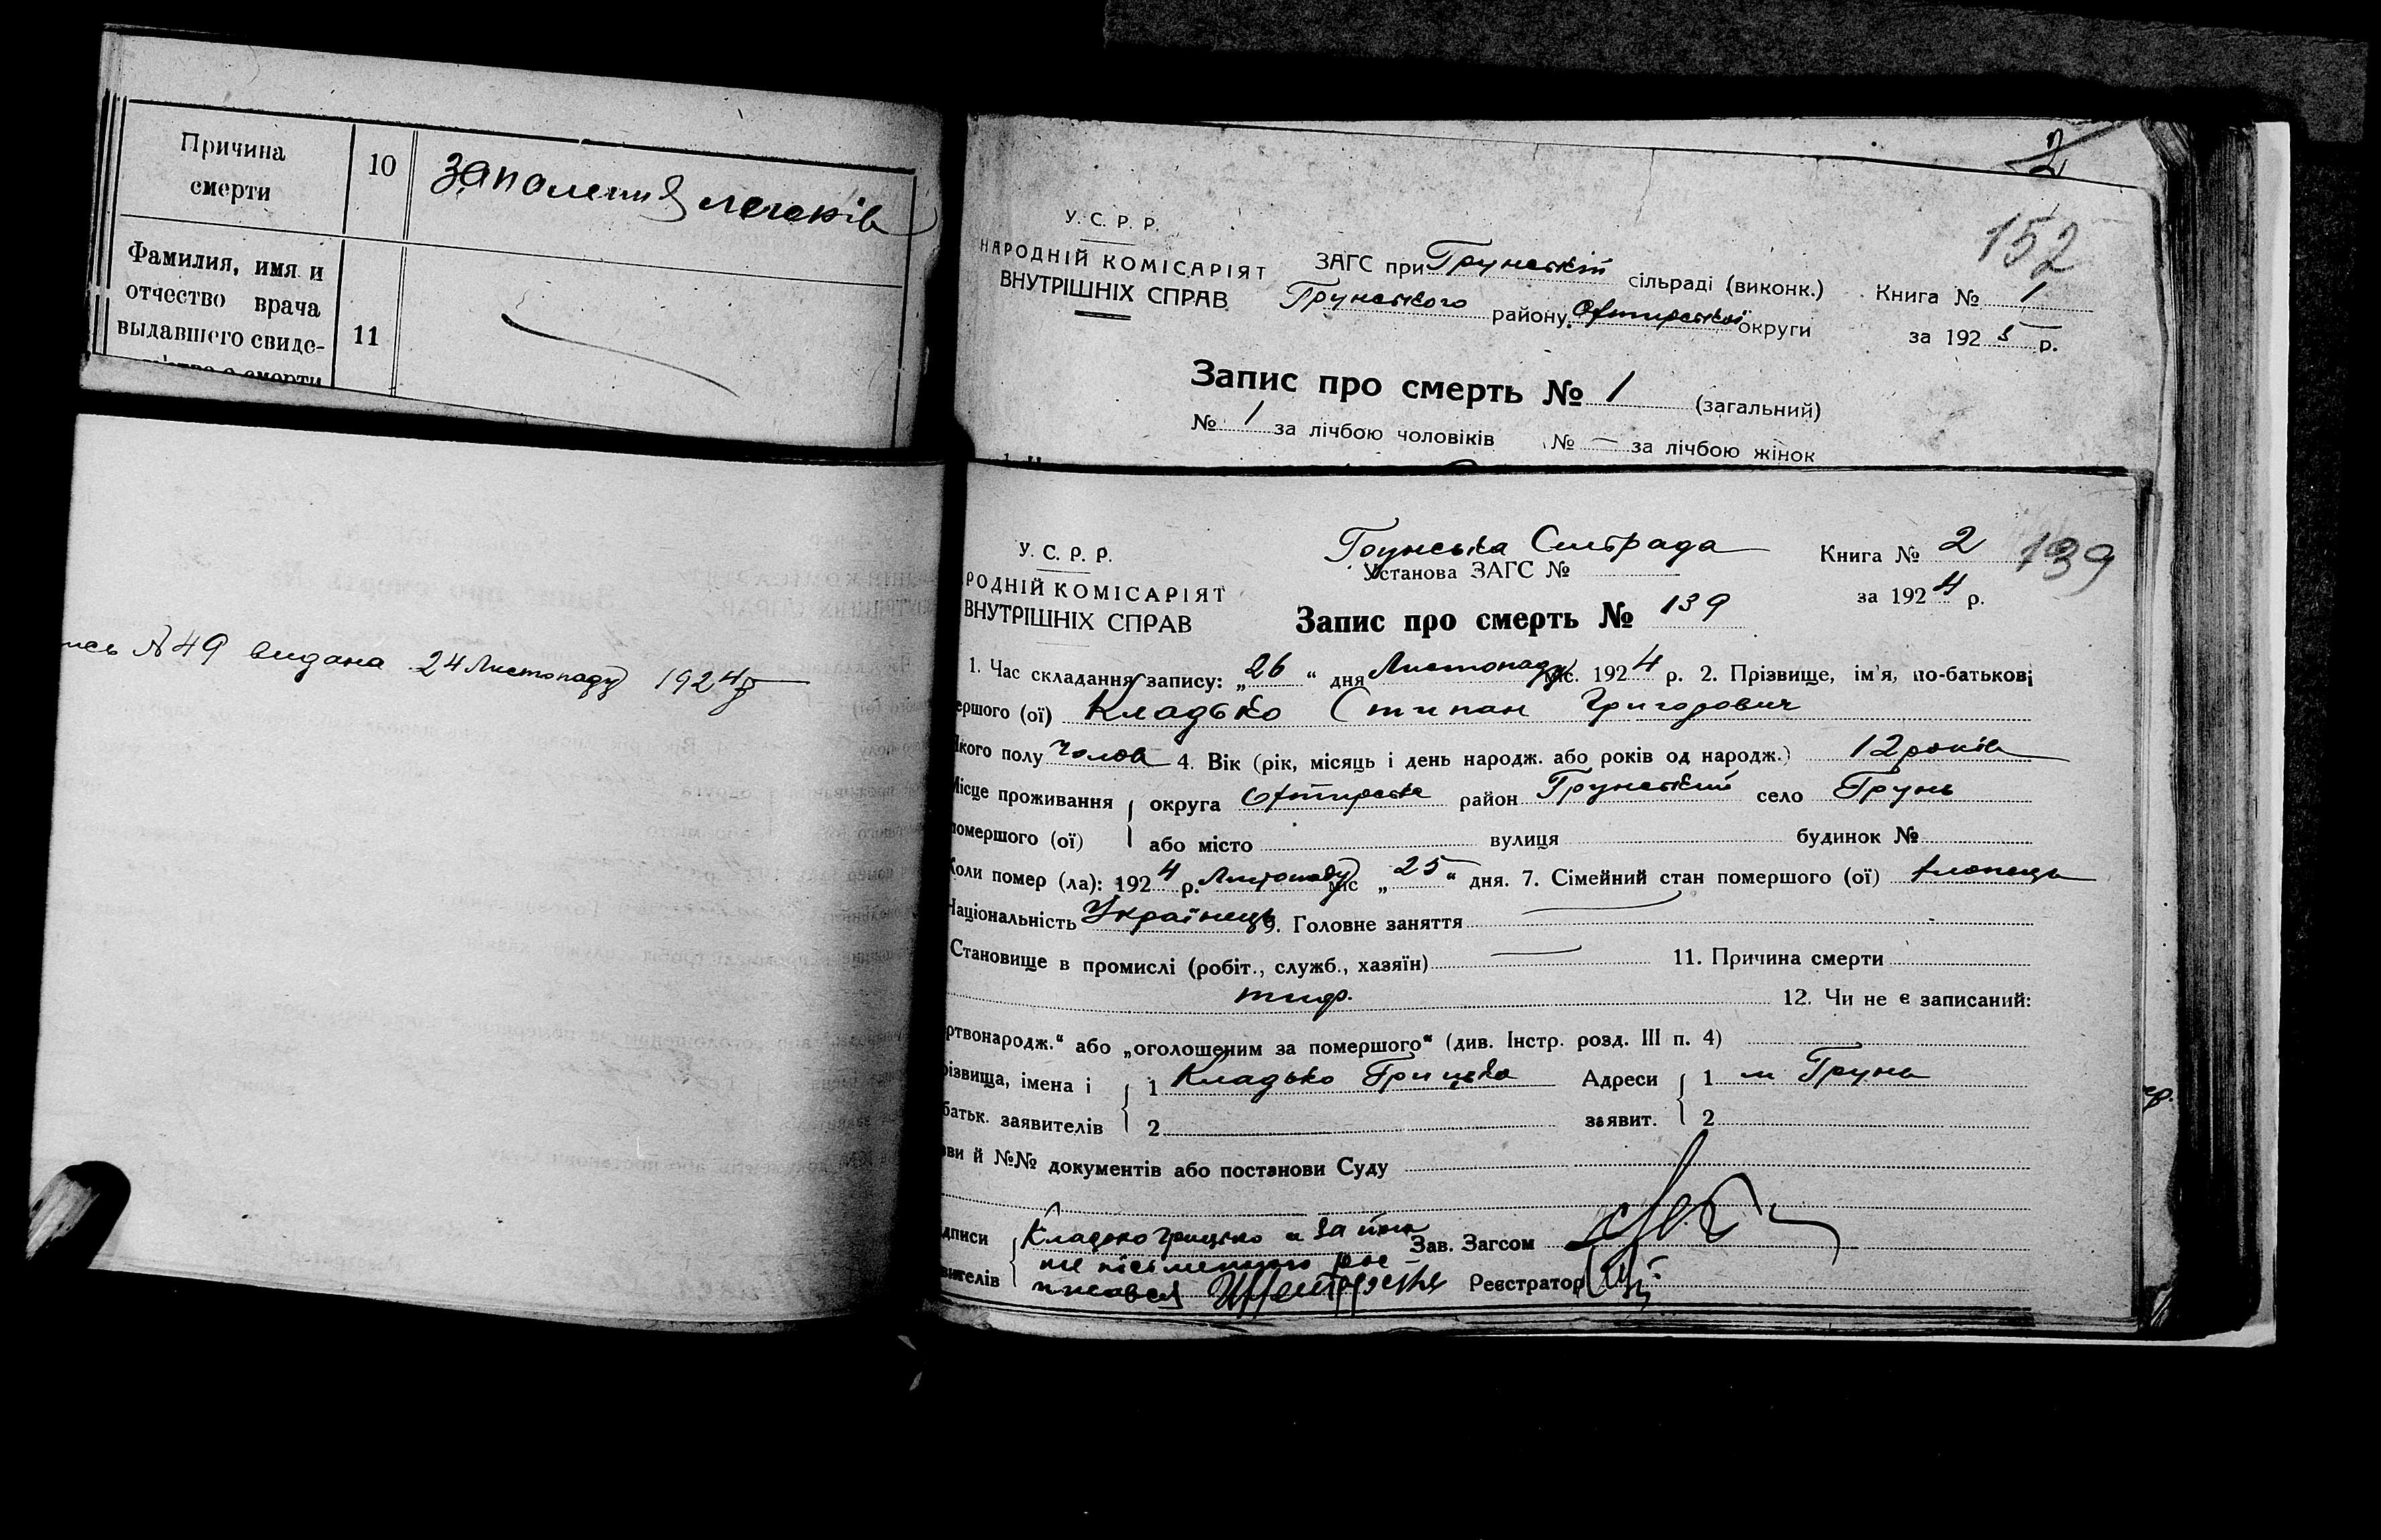 Причина смерти 10 запалення легенів
Фамилия, имя и
отчество врача
выдавшего свиде- 11
№ 49 видана 24 Листопаду 1924 р
2
152
У. С. Р. Р.
НАРОДНІЙ КОМІСАРІЯТ
ВНУТРІШНІХ СПРАВ
ЗАГС при Грунській сільраді (виконк.) Книга № 1
Грунського району Охтирської округи за 1925 р.
Запис про смерть № 1 (загальний)
№ 1 за лічбою чоловіків № — за лічбою жінок
Грунська Сільрада Книга № 2 139
У. С. Р. Р.
Установа ЗАГС №
РОДНІЙ КОМІСАРІЯТ за 1924 р.
ВНУТРІШНІХ СПРАВ
Запис про смерть № 139
1. Час складання запису: „26“ дня Листопаду міс. 1924 р. 2. Прізвище, ім'я, по-батькові
ершого (ої) Кладько Стипан Григорович
якого полу Чолов 4. Вік (рік, місяць і день народж. або років од народж.) 12 років
Місце проживання округа Охтирська район Грунський село Грунь
помершого (ої) або місто вулиця будинок №
Коли помер (ла): 1924 р. Листопаду міс „25“ дня. 7. Сімейний стан помершого (ої) хлопець
Національність Українець 9. Головне заняття
Становище в промислі (робіт., служб., хазяїн) 11. Причина смерти
тиф. 12. Чи не є записаний:
ртвонародж.“ або „оголошеним за помершого“ (див. Інстр. розд. III п. 4)
різвища, імена і 1 Кладько Грицько Адреси 1 м Грунь
батьк. заявителів 2 заявит. 2
ви й №№ документів або постанови Суду
дписи Кладько Грицько а за його Зав. Загсом
не писменого рос-
вителів писався Реєстратор